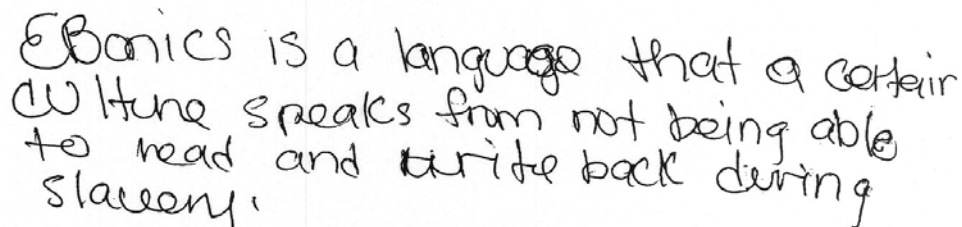 EBonics is a language that a certain
culture speaks from not being able
to read and write back during
slavery.